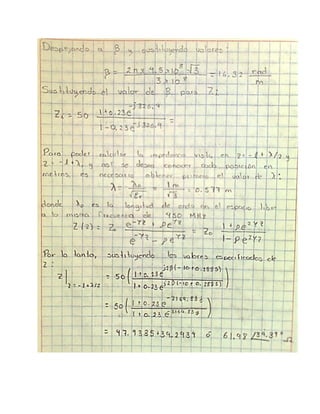 Despejando a β y sustituyendo valores:
β = 2π x 4.5 x 10⁸ √3 / 3 x 10⁸ = 16.32 rad/m
Sustituyendo el valor de β para Z:
Z = 50 1+0.23e / 1-0.23e =
Para poder calcular la impedancia vista en z = -l + λ/2 y
z = -l + λ, y aot se desea conocer cada posición en
metros, es necesario obtener primero el valor de λ:
λ = λo / √εr = 1m / √3 = 0.577 m
donde λo es la longitud de onda en el espacio libre
a la misma frecuencia de 450 MHz
Z(z) = Zo e^-γz + ρe^γz / e^-γz - ρe^γz = Zo 1+ρe^2γz / 1-ρe^2γz
Por lo tanto, sustituyendo los valores especificados de
z:
Z| z=-l+λ/2 = 50 (1+0.23e^j2β(-10+0.2885) / 1+0.23e^j2β(-10+0.2885))
= 50 (1+0.23e / 1+0.23e)
= 47.9385+39.2939 ó 61.98